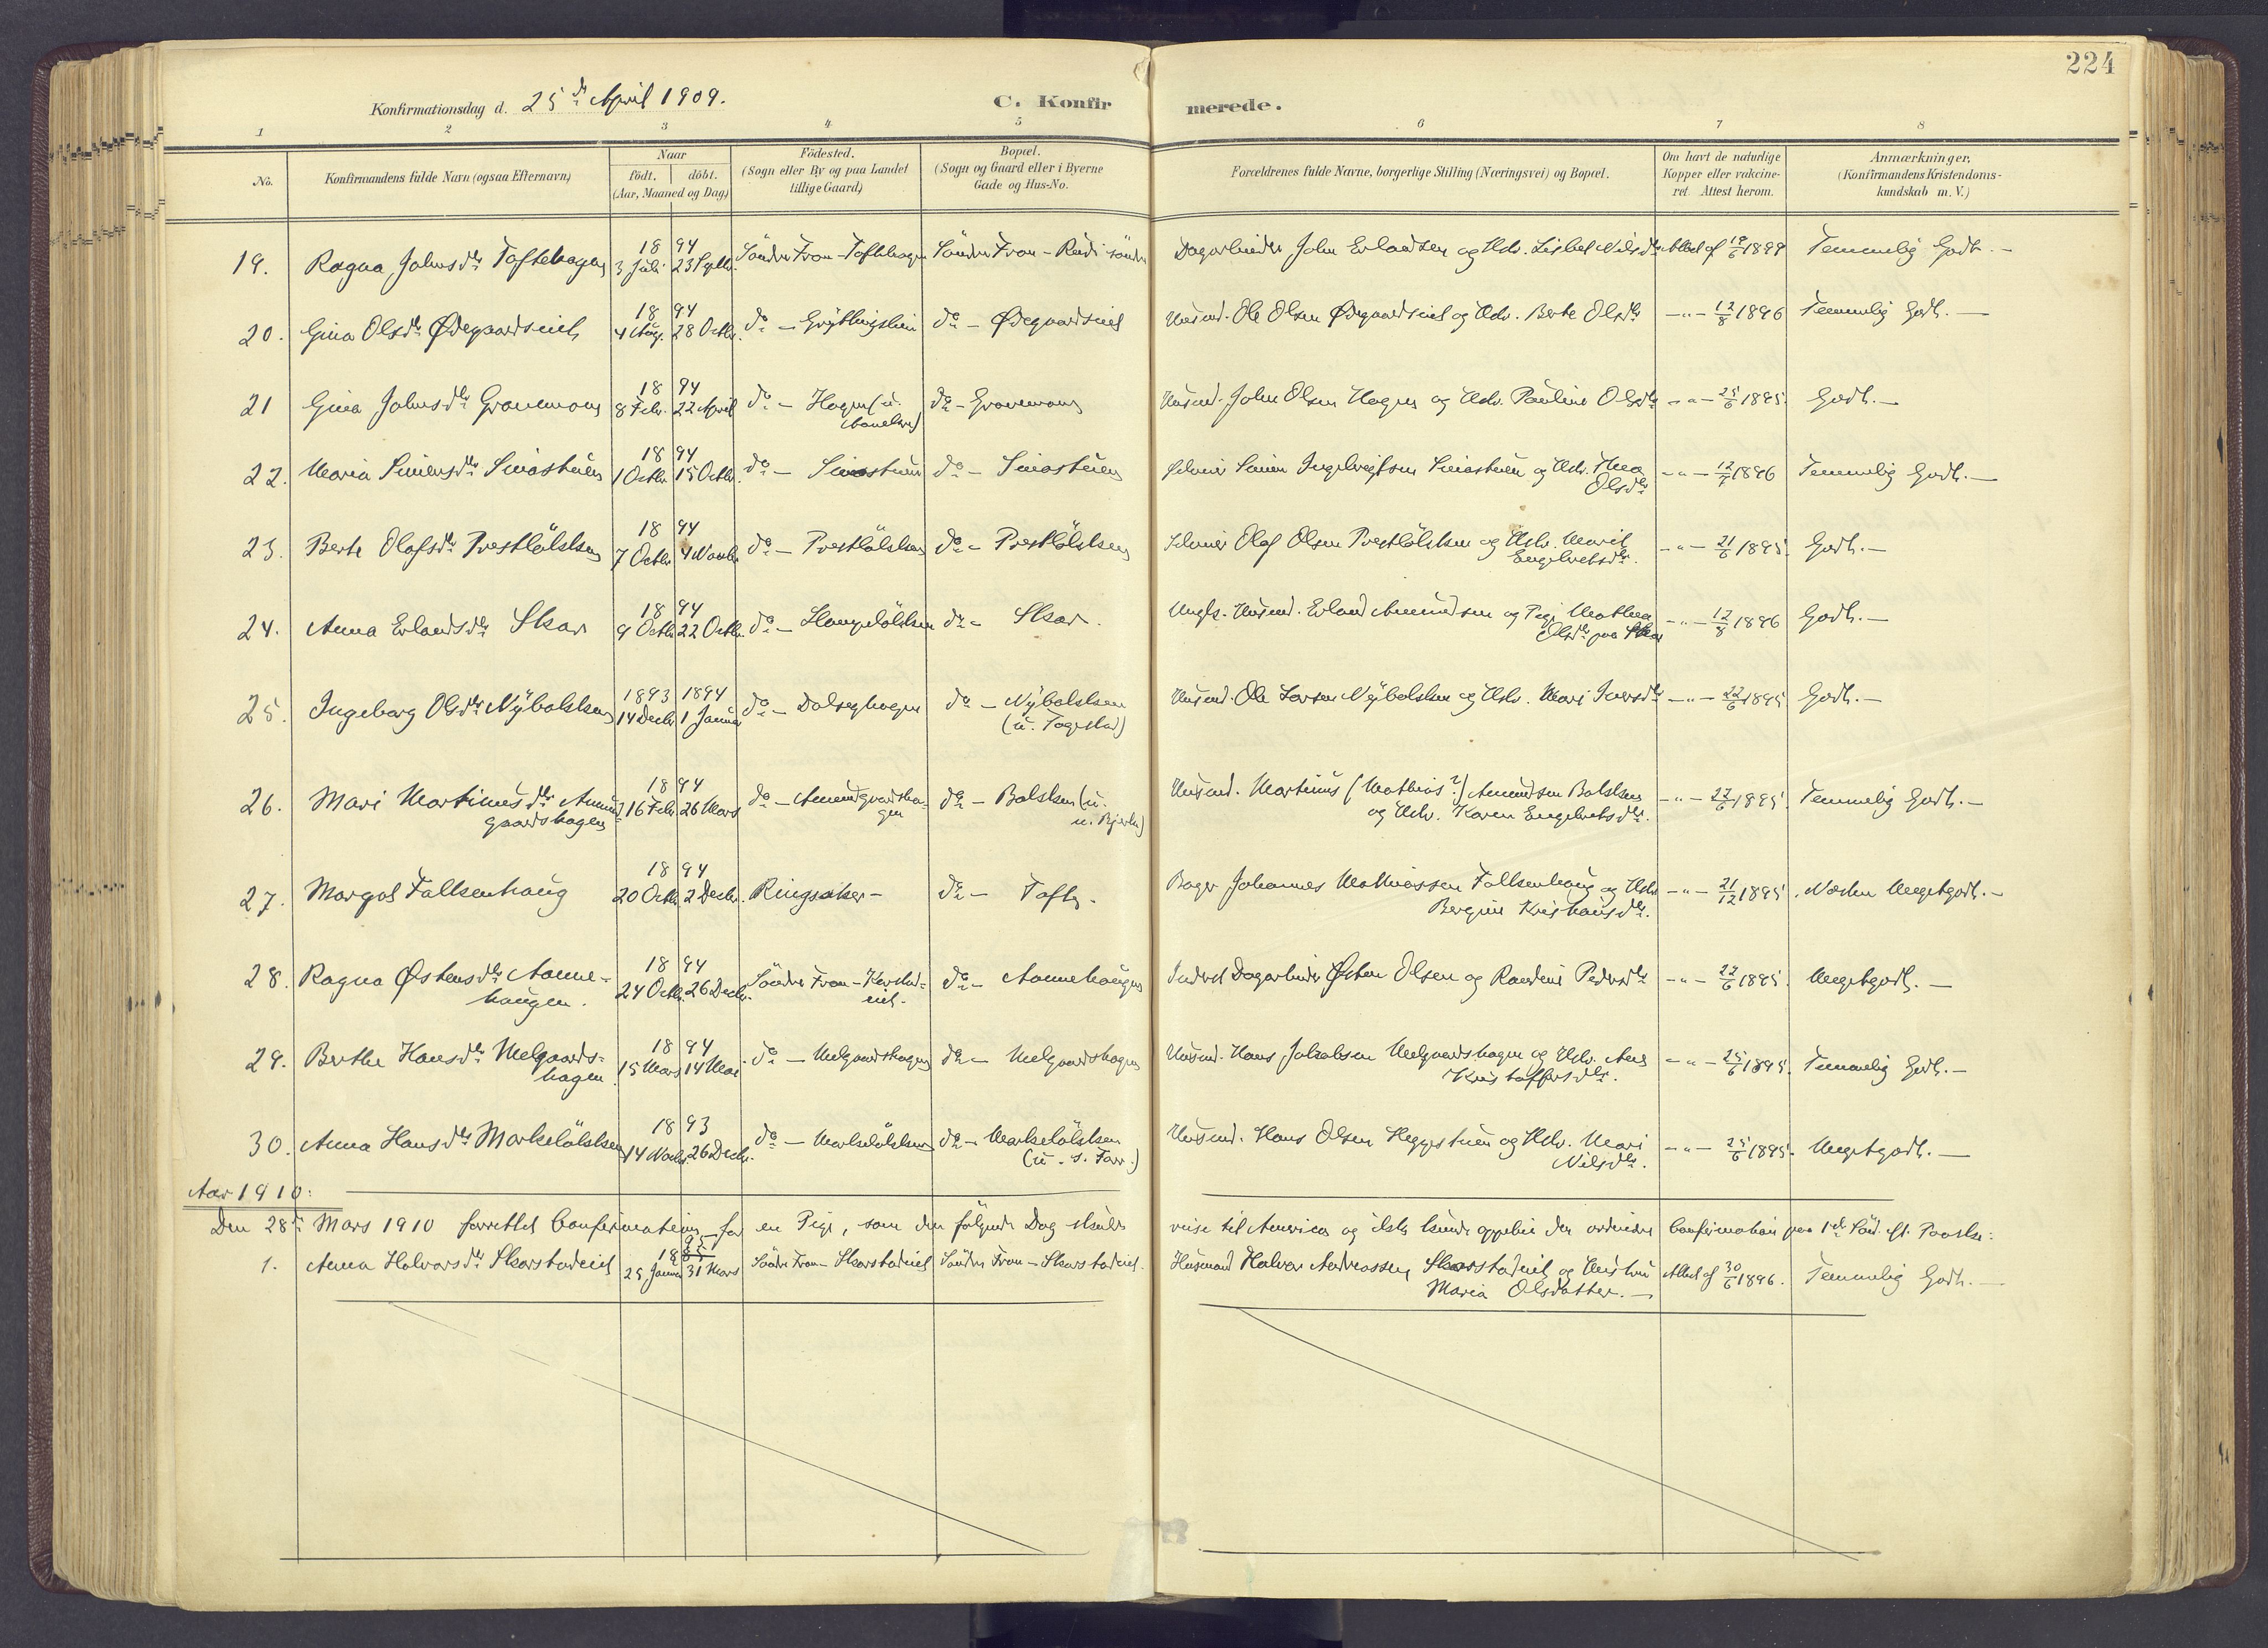 224
Konfirmationsdag d. 25de April 1909. C. Konfirmerede.
1 2 3 4 5 6 7 8
No. Konfirmandens fulde Navn (ogsaa Efternavn) Naar födt. döbt. (Aar, Maaned og Dag) Födested. (Sogn eller By og paa Landet tillige Gaard) Bopæl. (Sogn og Gaard eller i Byerne Gade og Hus-No. Forældrenes fulde Navne, borgerlige Stilling (Næringsvei) og Bopæl. Om havt de naturlige Kopper eller vakcineret. Attest herom. Anmærkninger, (Konfirmandens Kristendomskundskab m. V.)
19. Ragna Johnsdtr Toftehagen 1894 3 Juli 23 Septbr. Söndre Fron - Toftehagen Söndre Fron - Rudi söndre Dagarbeider John Erlandsen og Hstr. Lisbet Nilsdtr Attest af 19/6 1899 Temmelig Godt. —
20. Gina Olsdtr Ødegaardseiet 1894 4 Aug. 28 Octbr. do — Gryttingslien do — Ødegaardseiet Husmd. Ole Olsen Ødegaardseiet og Hstr. Berte Olsdtr —"— 12/8 1896 Temmelig Godt. —
21 Gina Johnsdtr Gravemoen 1894 8 Febr. 22 April do — Hagen (u. do — Gravemoen Husmd. John Olsen Hagen og Hstr. Pauline Olsdtr —"— 25/6 1895. Godt. —
22. Maria Simensdtr Smiastuen 1894 1 Octbr. 15 Octbr. do — Smiastuen do — Smiastuen Selveier Simen Ingebrigtsen Smiastuen og Hstr. Thea Olsdtr —"— 12/7 1896 Temmelig Godt. —
23. Berte Olafsdtr Prestlökken 1894 7 Octbr. 4 Novbr. do — Prestlökken do — Prestlökken Selveier Olaf Olsen Prestlökken og Hstr. Marit Engebretsdtr. —"— 21/6 1895. Godt. —
24. Anna Erlandsdtr Skar 1894 9 Octbr. 22 Octbr. do — Haugelökken do — Skar. Ungk. Husmd. Erland Amundsen og Pige Mathea Olsdtr paa Skar —"— 12/8 1896 Godt. —
25. Ingeborg Olsdtr Nybakken 1893 1894 14 Decbr. 1 Januar do — Dalseghagen do — Nybakken (u. Togstad) Husmd. Ole Larsen Nybakken og Hstr. Mari Iversdtr —"— 22/6 1895 Godt. —
26. Mari Martinusdtr Amundgaardshagen 1894 16 Febr. 26 Mars do — Amundgaardshagen do — Bakken (u. Husmd. Martinus (Mathias?) Amundsen Bakken og Hstr. Karen Engebretsdtr. —"— 22/6 1895. Temmelig Godt. —
27. Margot Falkenhaug 1894 20 Octbr. 2 Decbr. Ringsaker — do — Tofte. Bager Johannes Mathiassen Falkenhaug og Hstr Bergine Kristiansdtr. —"— 21/12 1895. Næsten Megetgodt. —
28. Ragna Østensdtr Aannehaugen. 1894 24 Octbr. 26 Decbr. Söndre Fron — do — Aannehaugen Inderst Dagarbeider Østen Olsen og Randine Pedersdtr —"— 22/6 1895. Megetgodt. —
29. Berthe Hansdtr Melgaardshagen 1894 15 Mars 14 Mai do — Melgaardshagen do — Melgaardshagen Husmd. Hans Jakobsen Melgaardshagen og Hstr. Ane Kristoffersdtr. —"— 25/6 1895. Temmelig Godt. —
30. Anna Hansdtr Markelökken 1893 14 Novbr. 26 Decbr. do — Markelökken do — Markelökken (u. s. Farr.) Husmd. Hans Olsen Heggestuen og Hstr. Mari Nilsdtr. —"— 25/6 1895. Megetgodt. —
Aar 1910:
Den 28de Mars 1910 forrettet Confirmation for en Pige, som den fölgende Dag skulde reise til America og ikke kunde oppebie den ordinære Confirmation paa 1ste Sönd. eft. Paaske:
1. Anna Halvorsdtr Skarstadeiet 1895 25 Januar 31 Mars Söndre Fron — Skarstadeiet Söndre Fron — Skarstadeiet. Husmand Halvor Andreassen Skarstadeiet og Hustru Maria Olsdatter. — Attest af 30/6 1896. Temmelig Godt. —